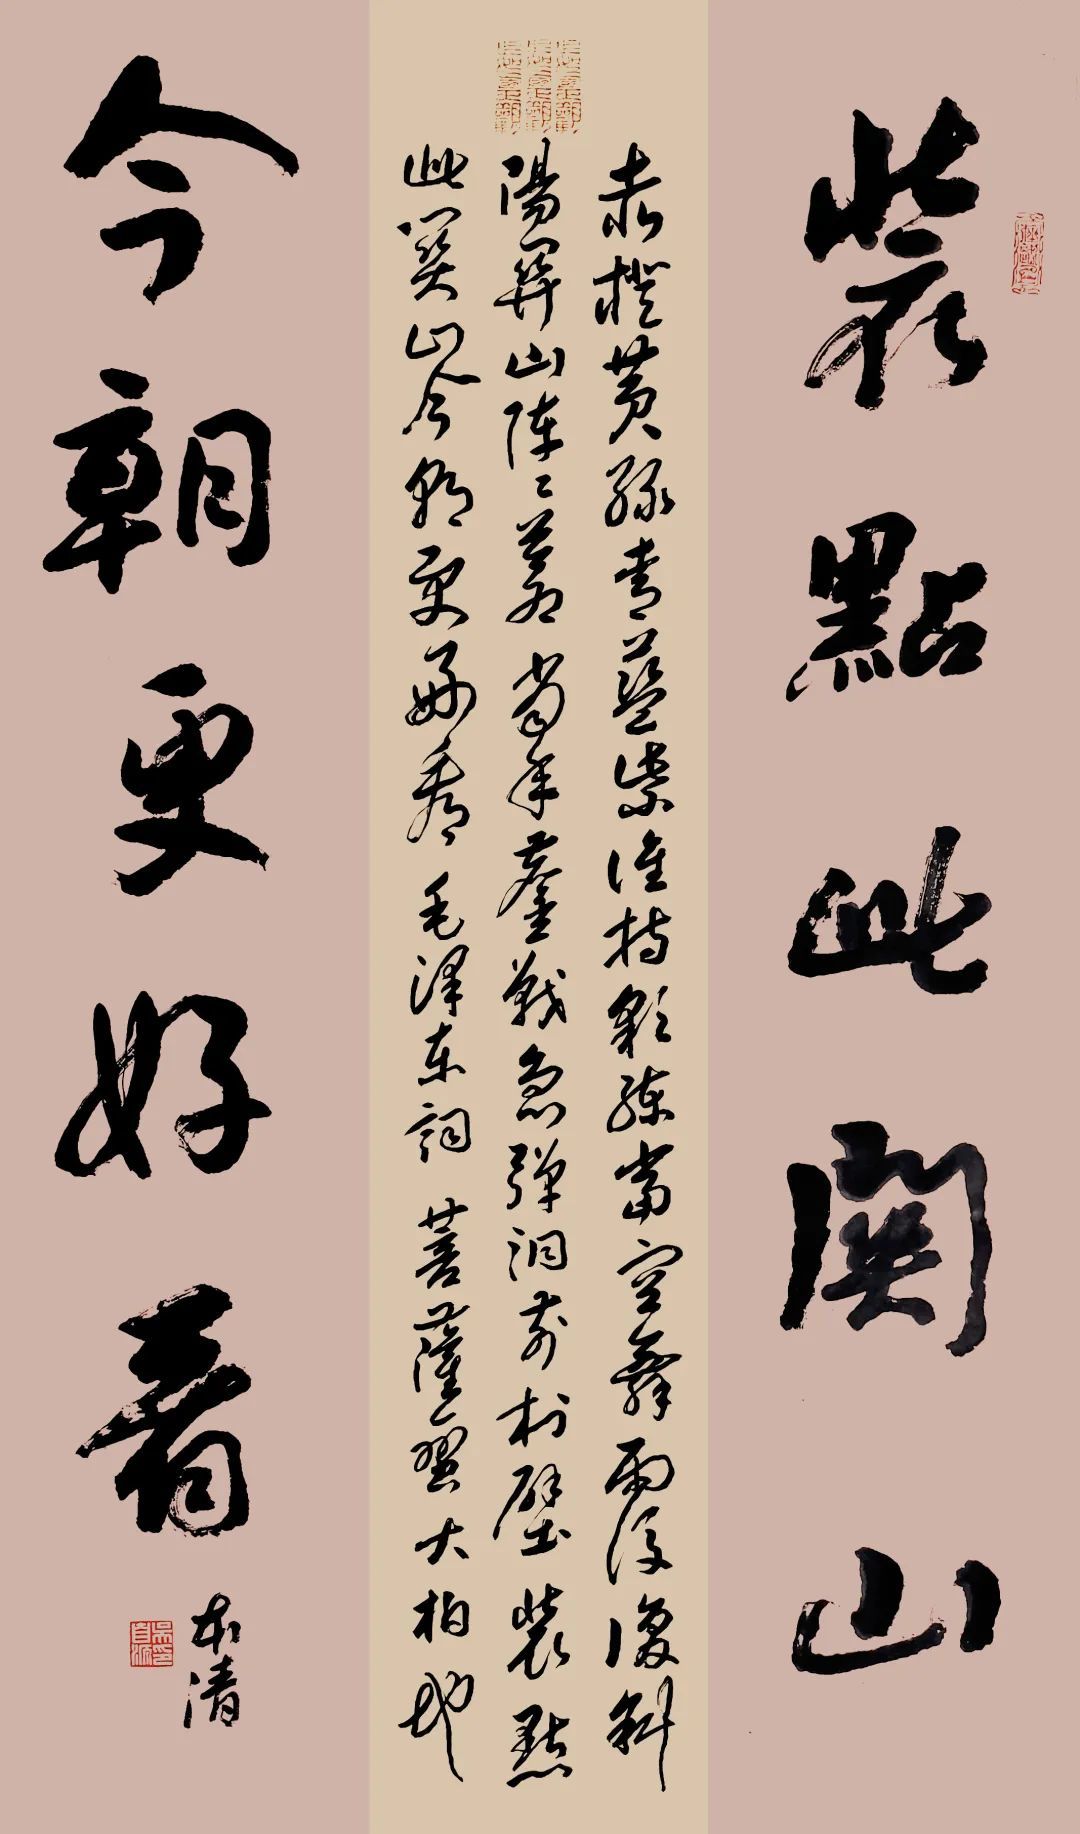 裝點此關山
赤橙黄綠青藍紫誰持彩練當空舞雨後復斜
陽關山陣〻蒼當年鏖戰急彈洞前村壁裝點
此關山今朝更好看毛澤東詞菩薩蠻大柏地
今朝更好看
本清